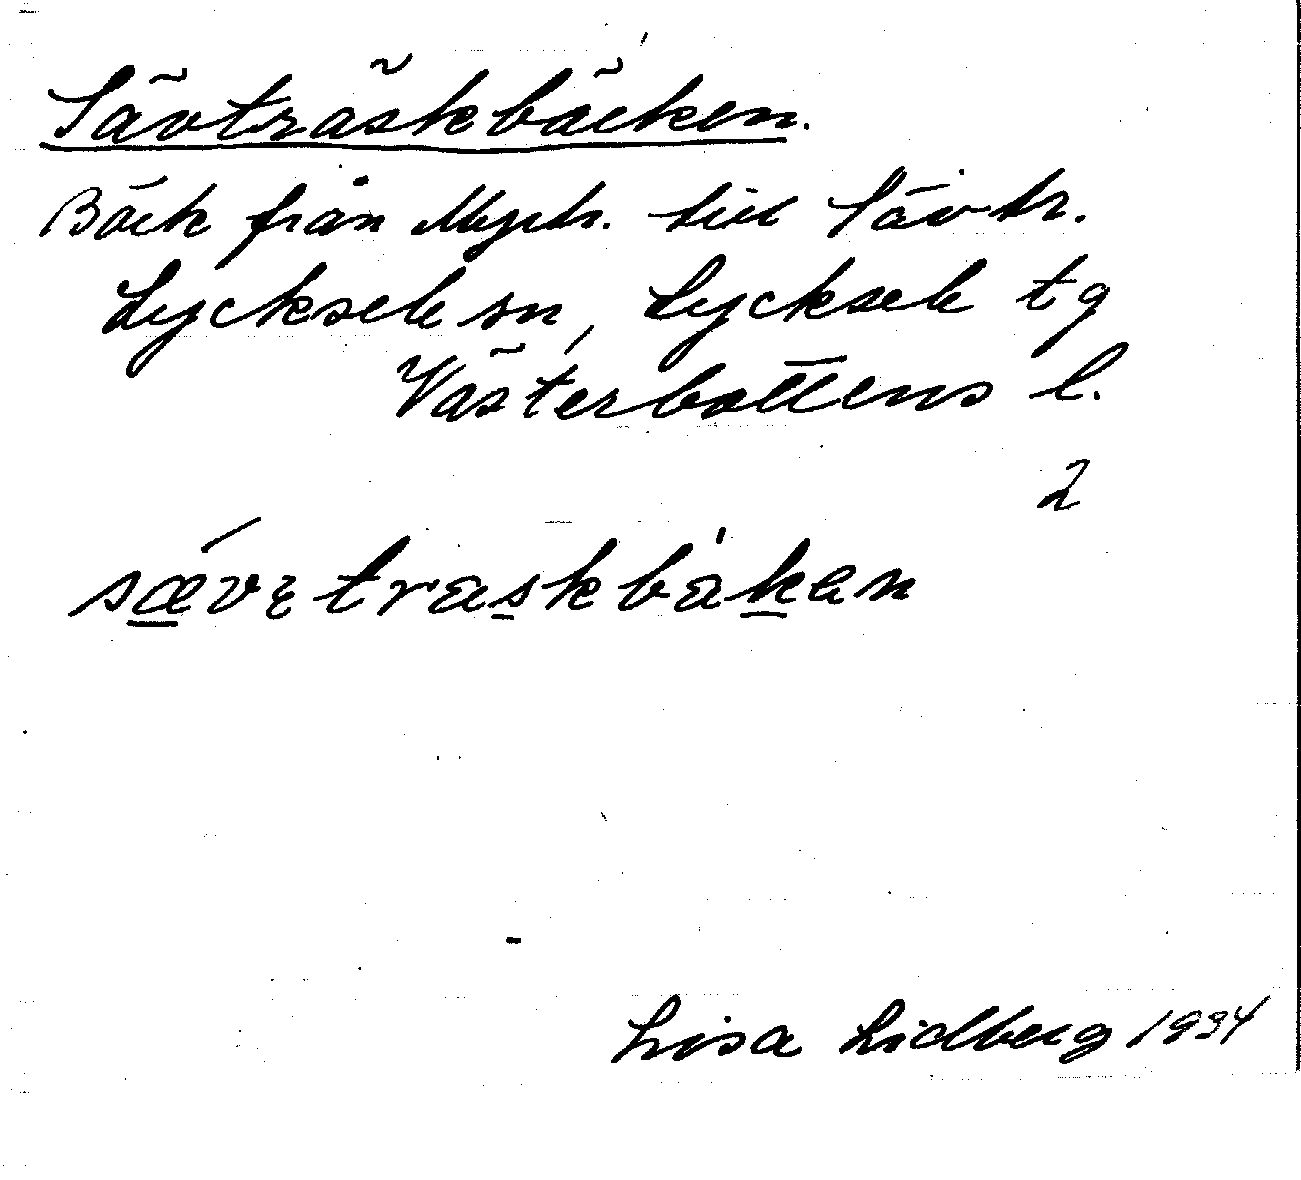 Sävträskbäcken.
Bäck från Myrtr. till Sävtr.
Lycksele sn, Lycksele tg
Västerbottens l.
2
sævetraskbàken
Lisa Lidberg 1934